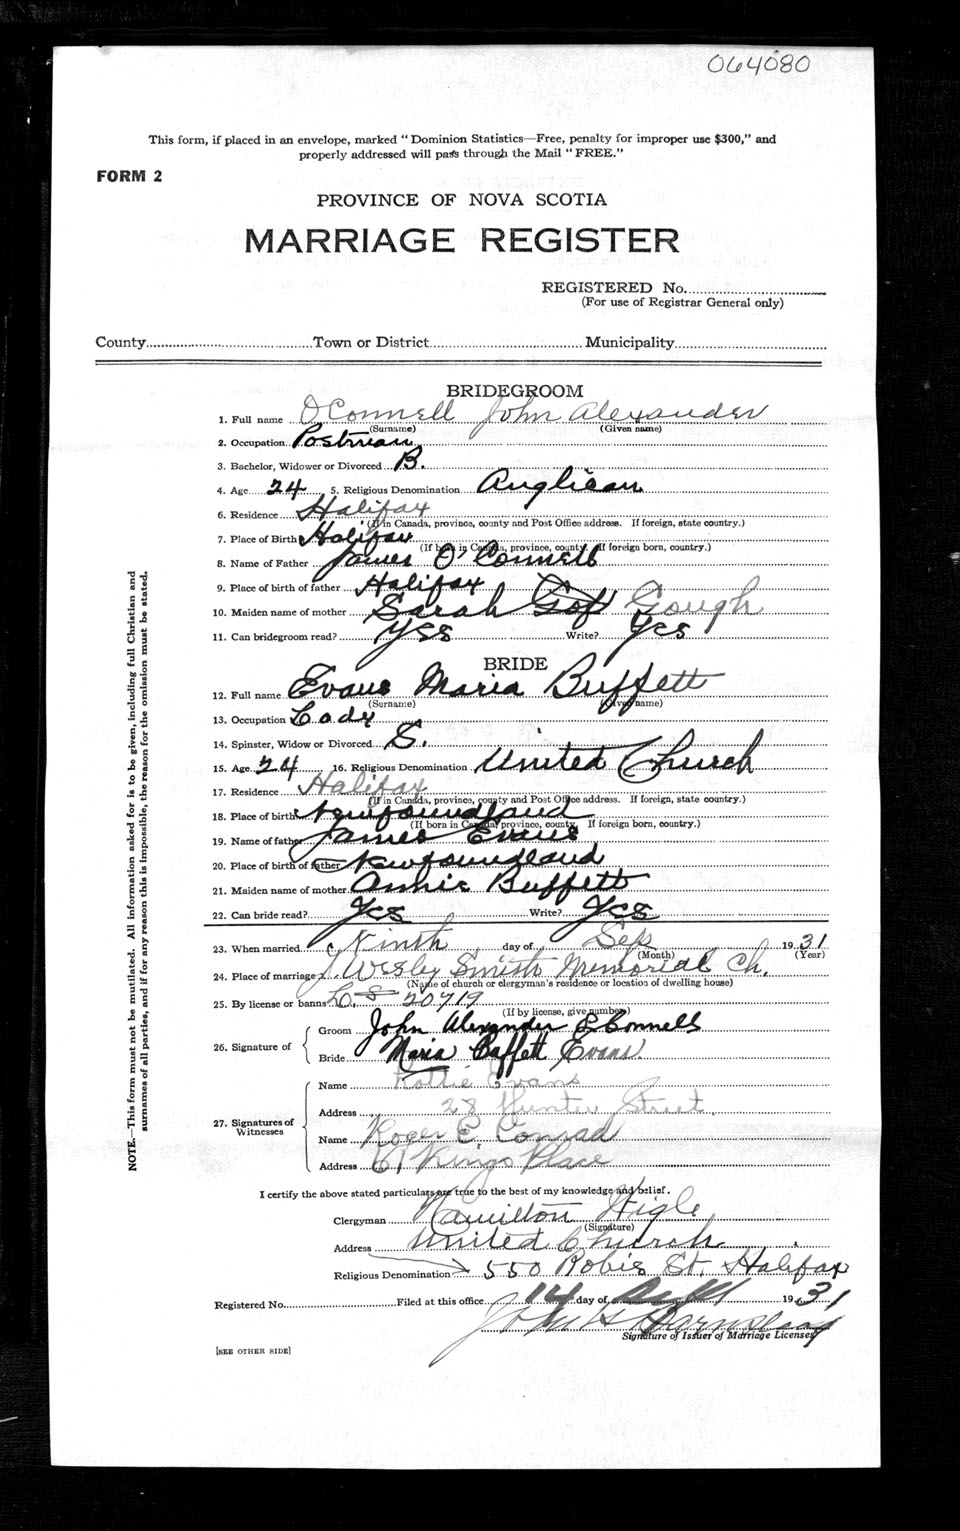 064080
This form, if placed in an envelope, marked "Dominion Statistics—Free, penalty for improper use $300," and
properly addressed will pass through the Mail "FREE."
FORM 2
PROVINCE OF NOVA SCOTIA
MARRIAGE REGISTER
REGISTERED No.
(For use of Registrar General only)
County Town or District Municipality
BRIDEGROOM
1. Full name O'Connell John Alexander
(Surname) (Given name)
2. Occupation Postman
3. Bachelor, Widower or Divorced B.
4. Age 24 5. Religious Denomination Anglican
6. Residence Halifax
(If in Canada, province, county and Post Office address. If foreign, state country.)
7. Place of Birth Halifax
(If born in Canada, province, county. If foreign born, country.)
8. Name of Father James O'Connell
9. Place of birth of father Halifax
10. Maiden name of mother Sarah Gof Gough
11. Can bridegroom read? Yes Write? Yes
BRIDE
12. Full name Evans Maria Buffett
(Surname) (Given name)
13. Occupation Lady
14. Spinster, Widow or Divorced S.
15. Age 24 16. Religious Denomination United Church
17. Residence Halifax
(If in Canada, province, county and Post Office address. If foreign, state country.)
18. Place of birth Newfoundland
(If born in Canada, province, county. If foreign born, country.)
19. Name of father James Evans
20. Place of birth of father Newfoundland
21. Maiden name of mother Annie Buffett
22. Can bride read? Yes Write? Yes
23. When married Ninth day of Sep 1931
(Month) (Year)
24. Place of marriage J. Wesley Smith Memorial Ch.
(Name of church or clergyman's residence or location of dwelling house)
25. By license or banns 20719
(If by license, give number)
26. Signature of
Groom John Alexander O'Connell
Bride Maria Buffett Evans
27. Signatures of Witnesses
Name Evans
Address 28 Hunter Street
Name Roger C. Conrad
Address 61 Kings Place
I certify the above stated particulars are true to the best of my knowledge and belief.
Clergyman Hamilton Wigle
(Signature)
Address United Church
Religious Denomination 550 Robie St. Halifax
Registered No. Filed at this office 14 day of 1931
John
Signature of Issuer of Marriage Licenses
[SEE OTHER SIDE]
NOTE.—This form must not be mutilated. All information asked for is to be given, including full Christian and
surnames of all parties, and if for any reason this is impossible, the reason for the omission must be stated.